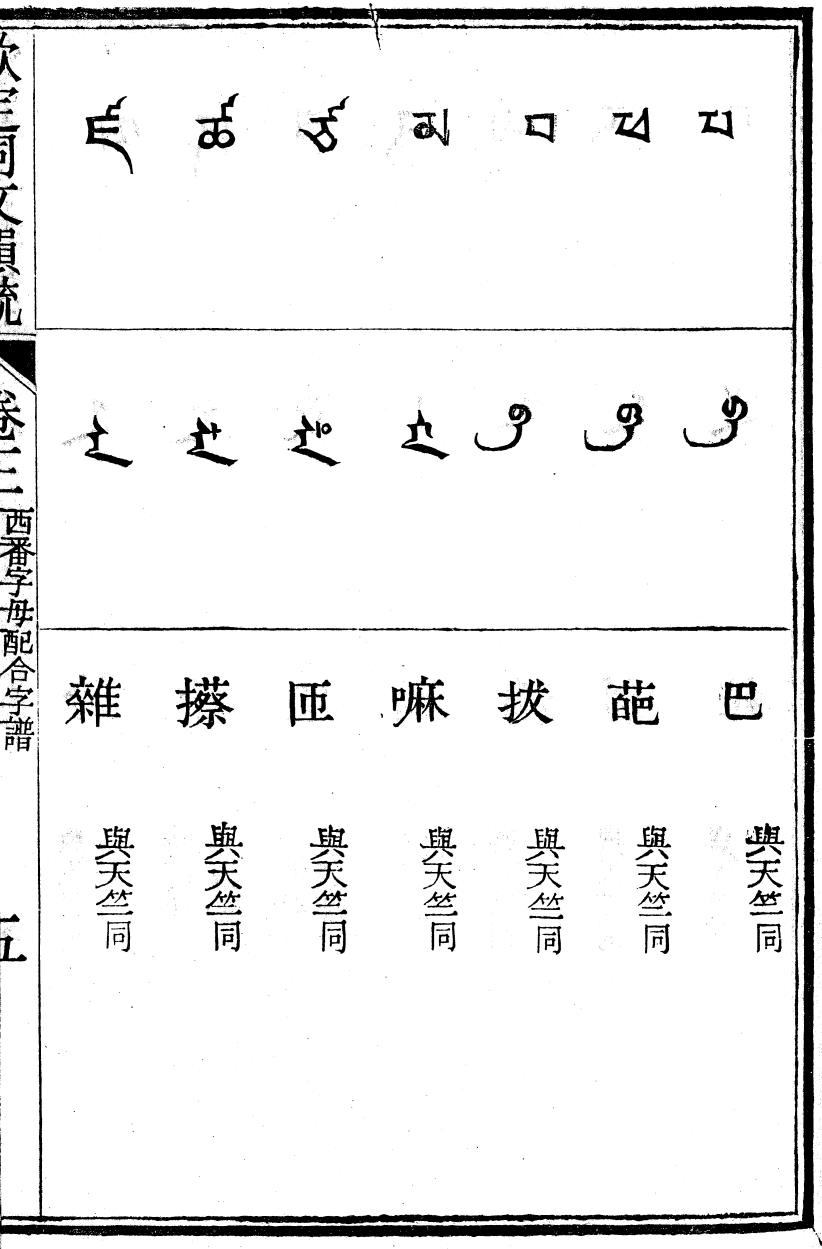 པ 巴 與天竺同
ཕ 葩 與天竺同
བ 拔 與天竺同
མ 嘛 與天竺同
ཙ 匝 與天竺同
ཚ 攃 與天竺同
ཛ 雜 與天竺同
欽定同文韻統 卷三 西番字母配合字譜 五